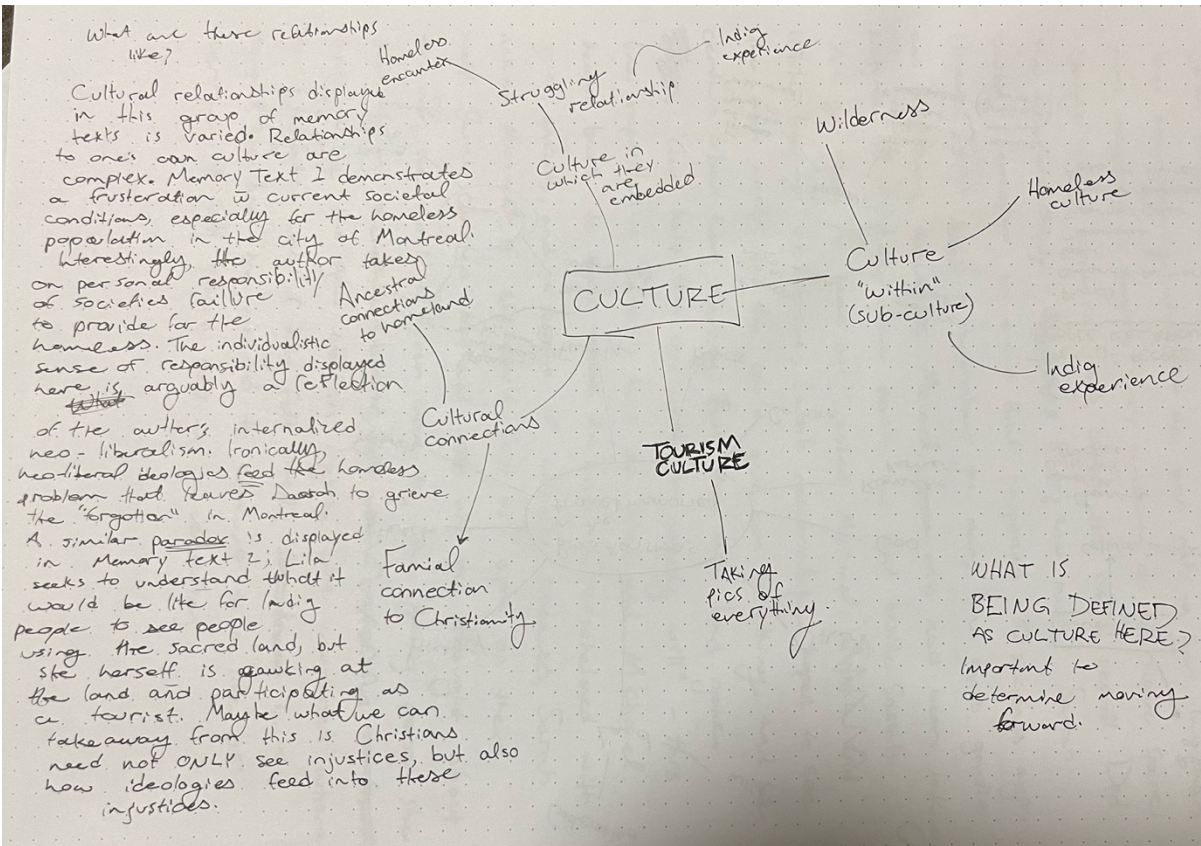 What are these relationships
like?
Cultural relationships displayed
in this group of memory
texts is varied. Relationships
to one's own culture are
complex. Memory Text 1 demonstrates
a frusteration w current societal
conditions, especially for the homeless
population in the city of Montreal.
Interestingly, the author takes
on personal responsibility
of societies failure
to provide for the
homeless. The individualistic
sense of responsibility displayed
here is arguably a reflection
of the author's internalized
neo-liberalism. Ironically,
neo-liberal ideologies feed the homeless
problem that leaves to grieve
the "forgotten" in Montreal.
A similar paradox is displayed
in Memory text 2; Lila
seeks to understand what it
would be like for Indig
people to see people
using the sacred land, but
she herself is gawking at
the land and participating as
a tourist. Maybe what we can
takeaway from this is Christians
need not ONLY see injustices, but also
how ideologies feed into these
injustides.
Homeless
encounter
Struggling
relationship
Indig
experience
Culture in
which they
are
embedded
CULTURE
Wilderness
Homeless
culture
Culture
"within"
(sub-culture)
Indig
experience
Ancestral
connections
to homeland
Cultural
connections
Famial
connection
to Christianity
TOURISM
CULTURE
Taking
pics of
everything.
WHAT IS
BEING DEFINED
AS CULTURE HERE?
Important to
determine moving
forward.